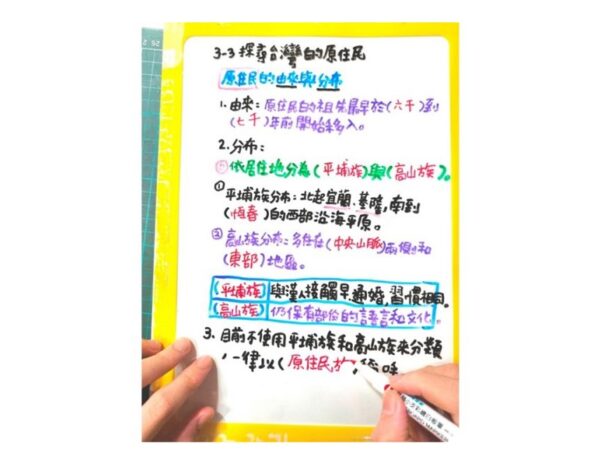 3-3 探尋台灣的原住民
原住民的由來與分布
1. 由來：原住民的祖先最早於(六千)到
(七千)年前開始移入。
2. 分布：
依居住地分為(平埔族)與(高山族)。
① 平埔族分布：北起宜蘭、基隆，南到
(恆春)的西部沿海平原。
② 高山族分布：多住在(中央山脈)兩側和
(東部)地區。
(平埔族) 與漢人接觸早、通婚，習慣相同。
(高山族) 仍保有部份的語言和文化。
3. 目前不使用平埔族和高山族來分類
，一律以(原住民族